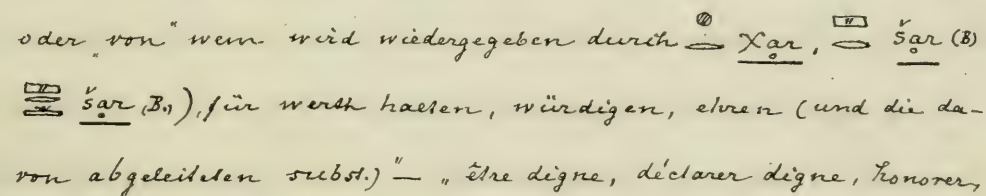 oder „von“ wem wird wiedergegeben durch 𓐍𓂋 χar, 𓈙𓂋 šar (B)
šar (B.), für werth halten, würdigen, ehren (und die da-
von abgeleiteten subst.)“ — „être digne, déclarer digne, honorer,